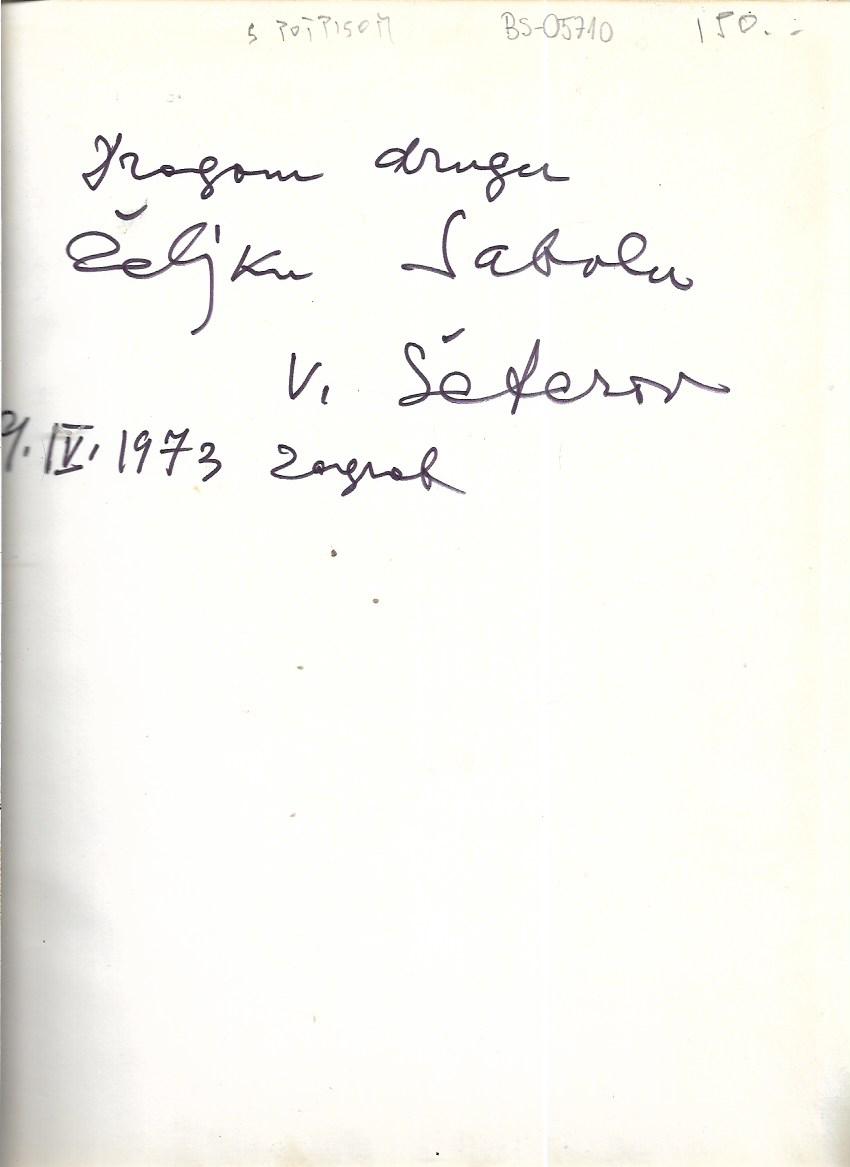 S POTPISOM BS-05710 150.-
Dragom drugu
Željku Sabolu
V.
IV. 1973 Zagreb